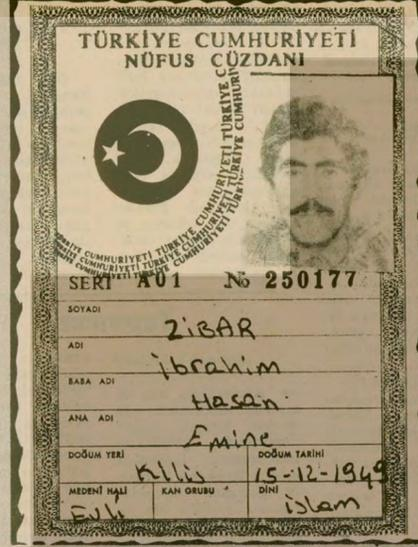 TÜRKİYE CUMHURİYETİ
NÜFUS CÜZDANI
TÜRKİYE CUMHURİYETİ TÜRKİYE CUMHURİYETİ TÜRKİYE
SERİ A01 № 250177
SOYADI
ZİBAR
ADI
İbrahim
BABA ADI
Hasan
ANA ADI
Emine
DOĞUM YERİ DOĞUM TARİHİ
Kilis 15-12-1949
MEDENİ HALİ KAN GRUBU DİNİ
Evli İslam